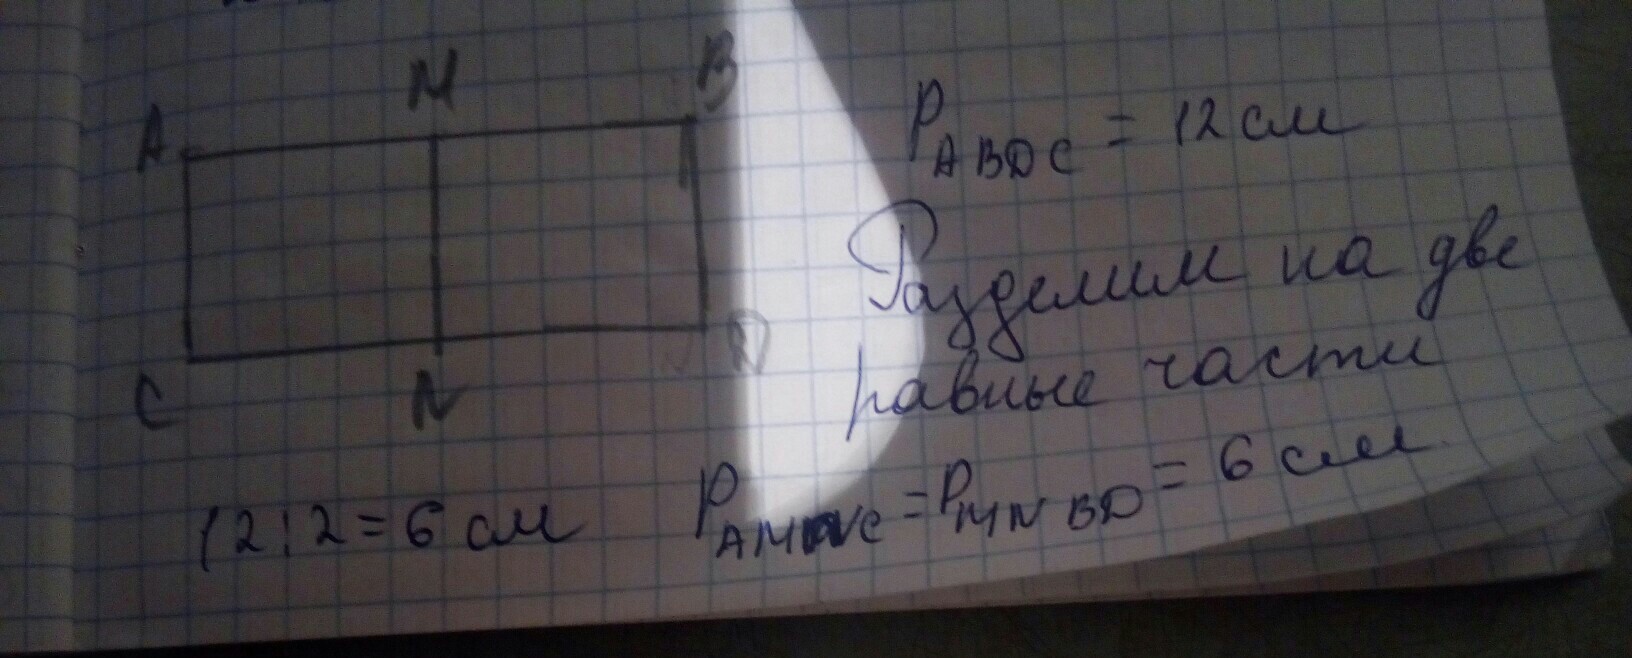 M B
A
C N D
P ABDC = 12 см
Разделим на две
равные части
12:2=6 см
P AMNC = P MNBD = 6 см